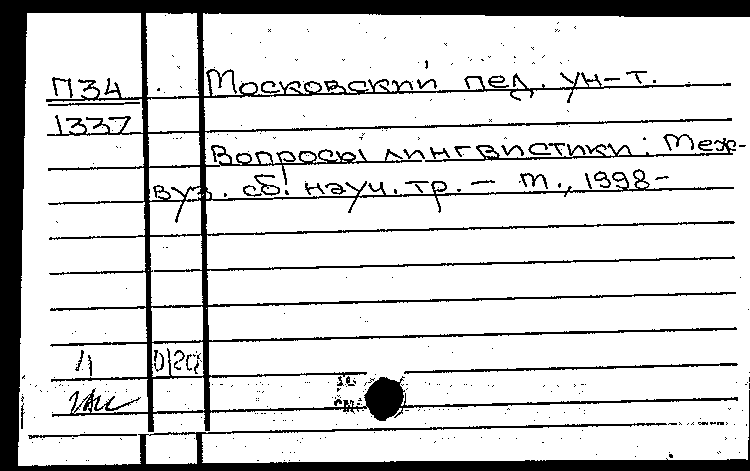 П34 Московский пед. ун-т.
1337
Вопросы лингвистики: Меж-
вуз. сб. науч. тр. – М., 1998-